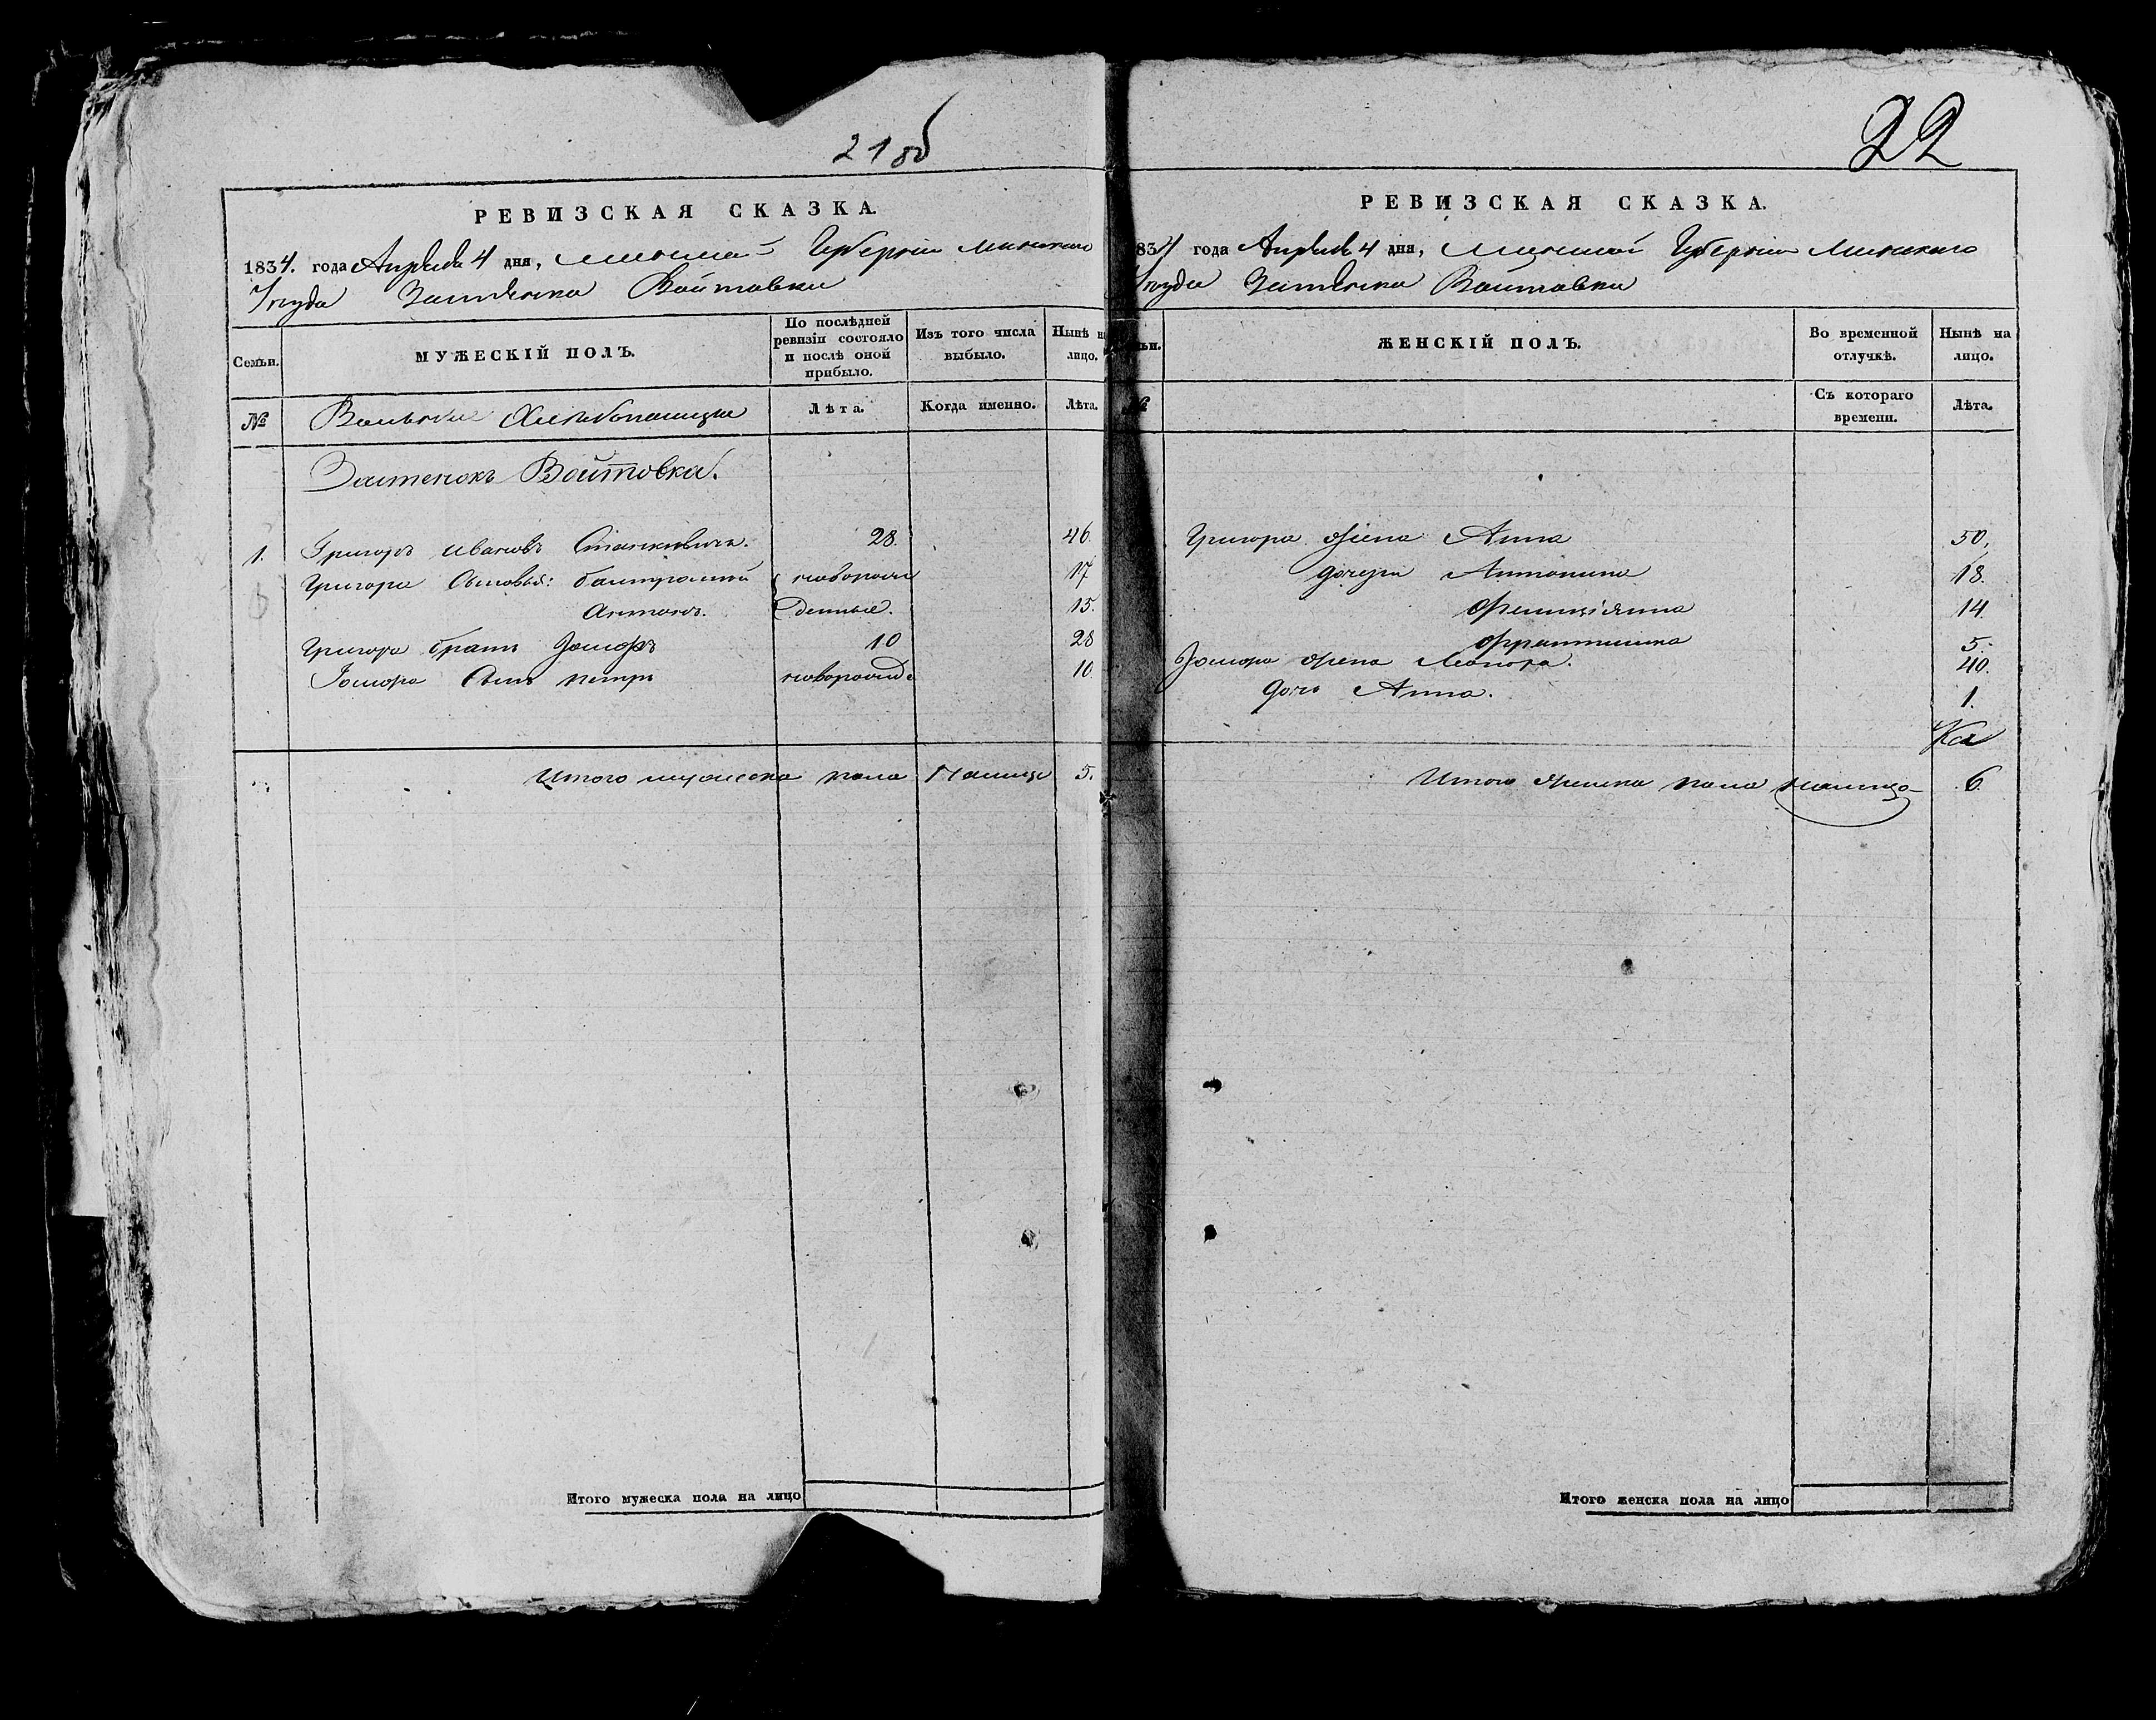 21 об
РЕВИЗСКАЯ СКАЗКА.
1834. года Апреля 4 дня, Минской Губерніи Минскаго
Уезда Застенка Войтовки
Семьи. МУЖЕСКІЙ ПОЛЪ. По послѣдней ревизіи состояло и послѣ оной прибыло. Изъ того числа выбыло. Нынѣ на лицо.
№ Вольные Хлебопашцы Лѣта. Когда именно. Лѣта.
Застенокъ Войтовка.
1. Григоръ Ивановъ Станкевичъ. 28. 46.
Григора Сыновья: Балтромей новорож 17
Антонъ. денные. 15.
Григора братъ Іосифъ 10 28
Іосифа Сынъ петръ новорожд 10.
Итого мужеска пола Налицо 5.
Итого мужеска пола на лицо
22
РЕВИЗСКАЯ СКАЗКА.
1834 года Апреля 4 дня, Минской Губерніи Минскаго
Уезда Застенка Войтовки
ЖЕНСКІЙ ПОЛЪ. Во временной отлучкѣ. Нынѣ на лицо.
№ Съ котораго времени. Лѣта.
Григора жена Анна 50.
дочери Антонина 18.
Фелиціянна 14.
Франтишка 5.
Іосифа жена Леонора. 40.
дочь Анна. 1.
Итого женска пола налицо 6.
Итого женска пола на лицо